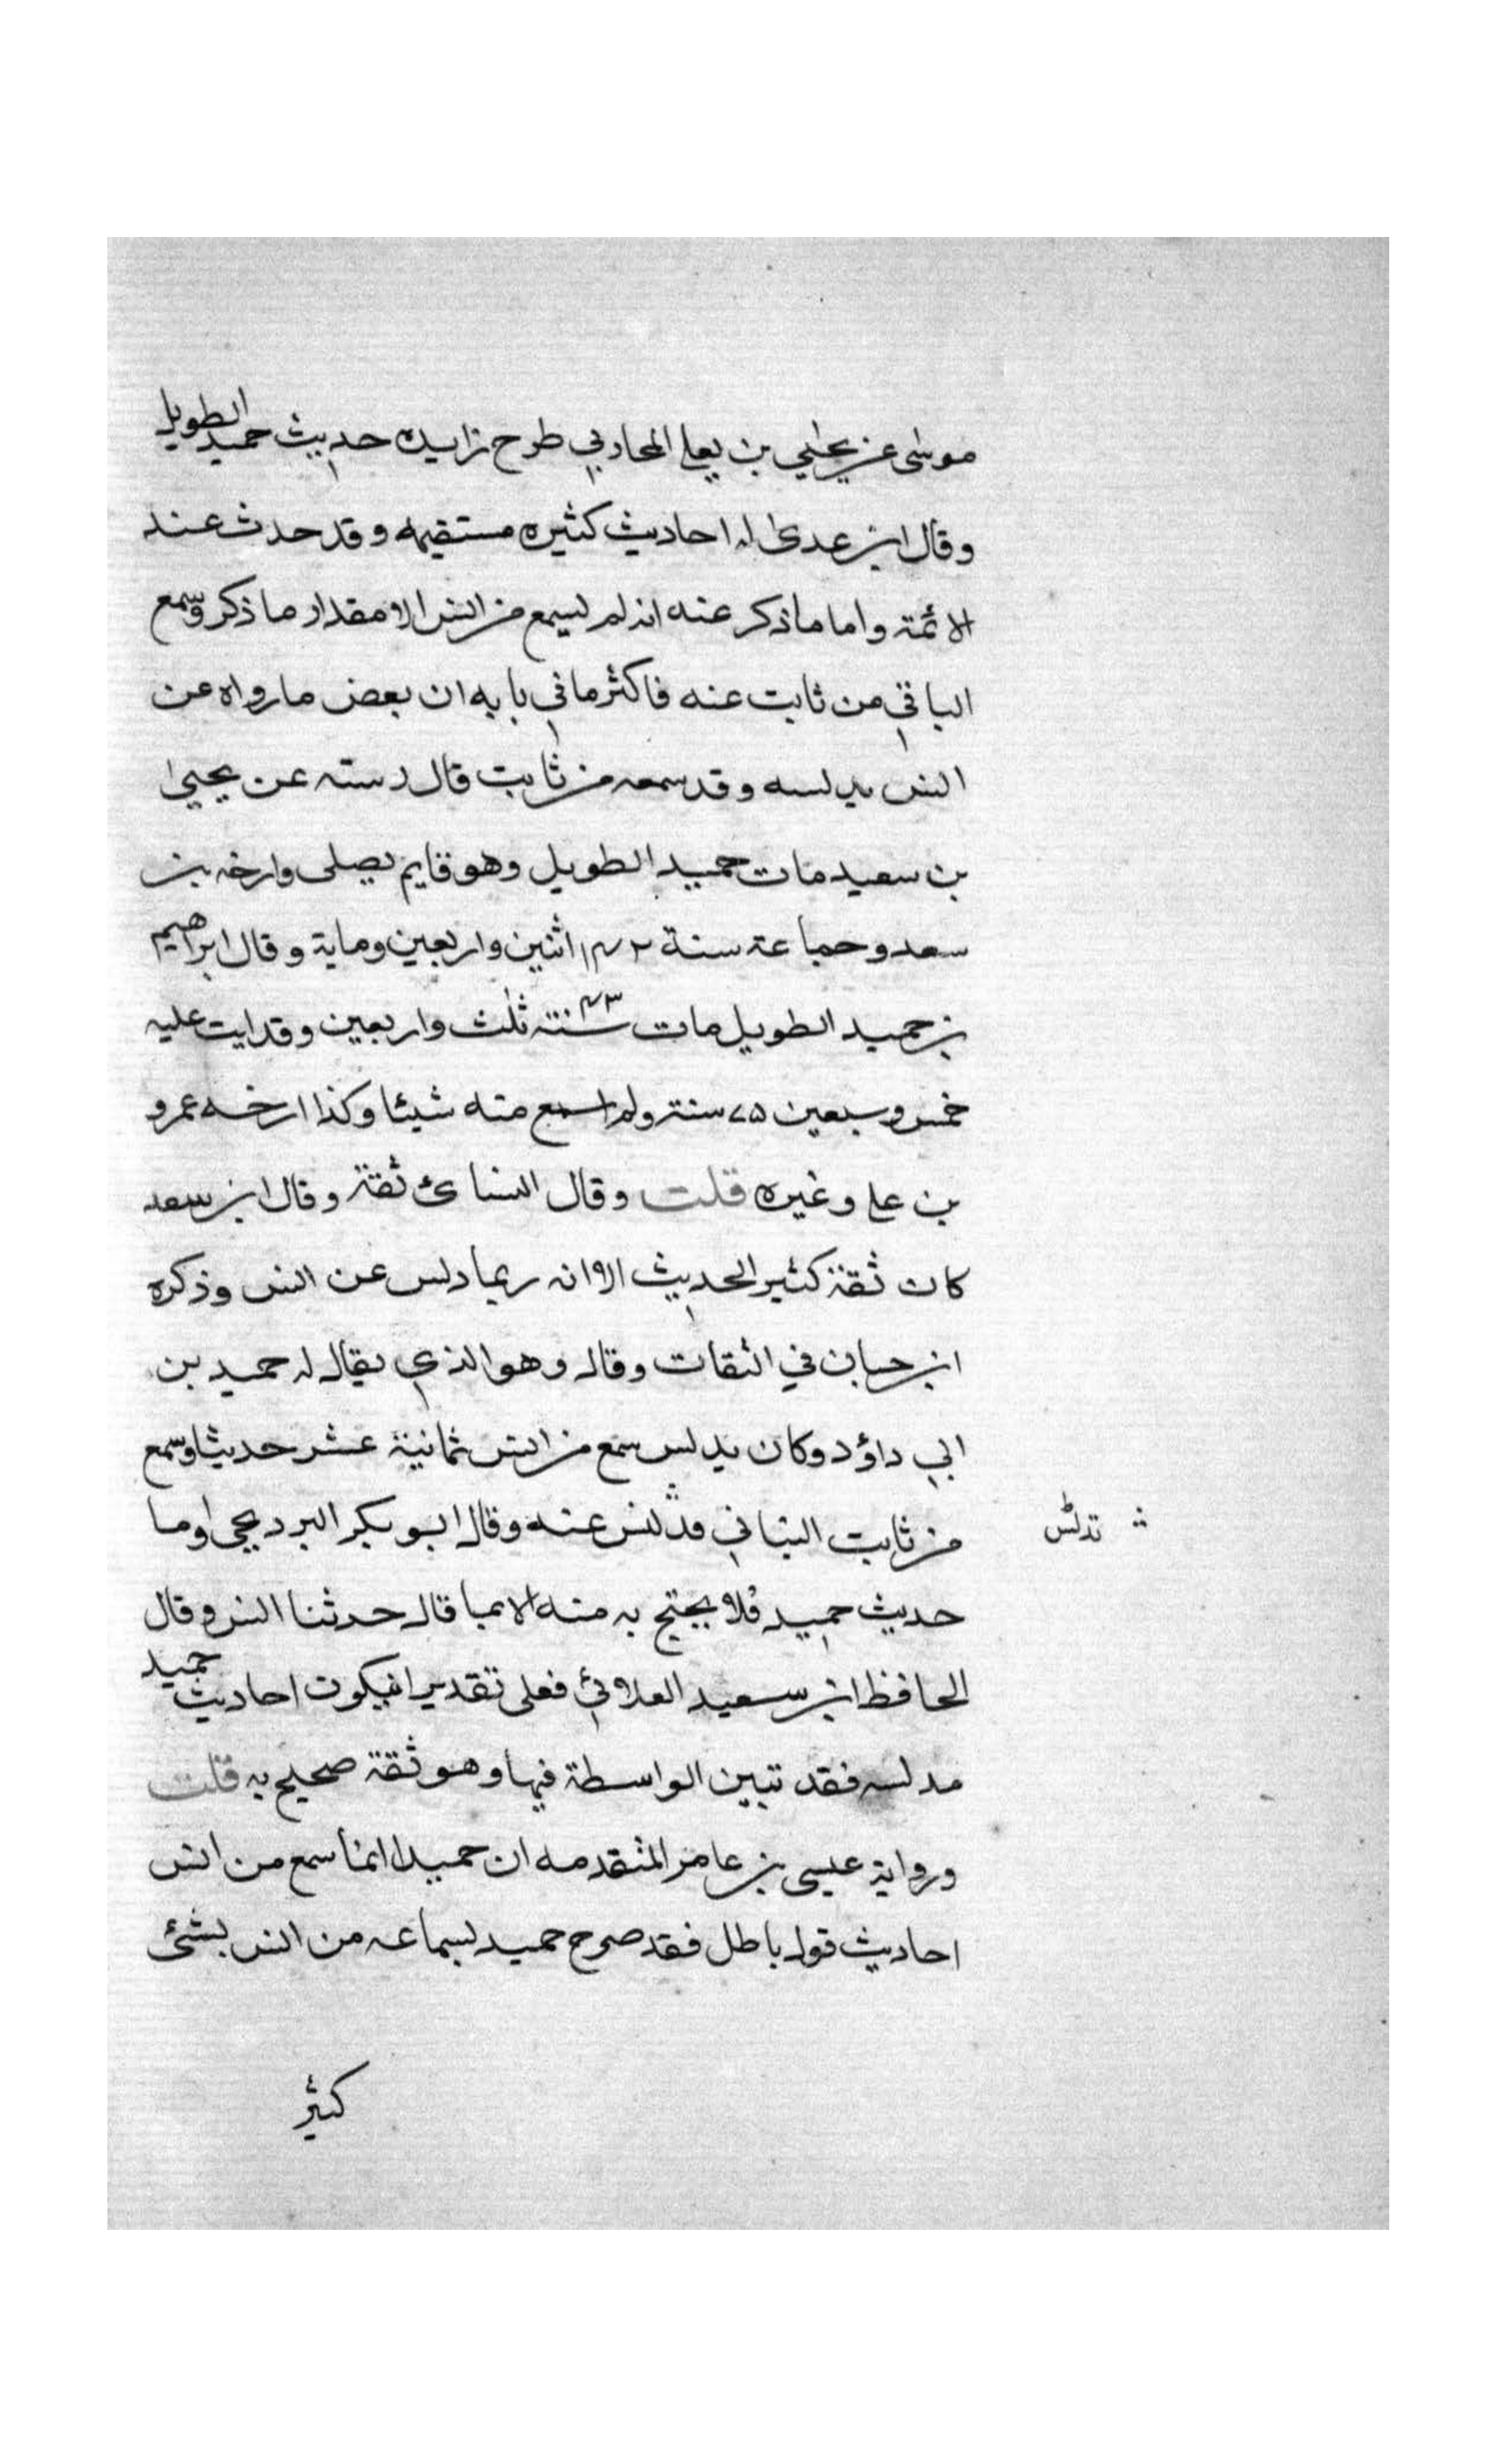 موسى عن يحيى بن يعلى المحاربي طرح زايده حديث حميد الطويل
وقال ابن عدى له احاديث كثيره مستقيمه وقد حدث عنه
الائمة واما ما ذكر عنه انه لم يسمع من انس الا مقدار ما ذكر وسمع
الباقي من ثابت عنه فاكثر ما في بابه ان بعض ما رواه عن
انس يدلسه وقد سمعه من ثابت قال رسته عن يحيى
بن سعيد مات حميد الطويل وهو قايم يصلى وارخه بن
سعد وجماعة سنة ١۴٢ اثنين واربعين وماية وقال ابراهيم
بن حميد الطويل مات سنة ۴٣ ثلث واربعين وقد ايت عليه
خمس وسبعين ٧۵ سنة ولم اسمع منه شيئا وكذا ارخه عمرو
بن على وغيره قلت وقال النسائ ثقة وقال ابن سعد
كان ثقة كثير الحديث الا انه ربما دلس عن انس وذكره
ابن حبان في الثقات وقال وهو الذي يقال له حميد بن
ابي داؤد وكان يدلس سمع من انس ثمانية عشر حديثا وسمع
من ثابت البناني فدلس عنه وقال ابو بكر البرديجى اوما
حديث حميد فلا يحتج به منه الا بما قال حدثنا انس وقال
الحافظ ابن سعيد العلائي فعلى تقدير ان يكون احاديث حميد
مدلسه فقد تبين الواسطة فيها وهو ثقة صحيح به قلت
ورواية عيسى بن عامر المتقدمه ان حميدا انما سمع من انس
احاديث قول باطل فقد صرح حميد بسماعه من انس بشئ
كثير
تدلس